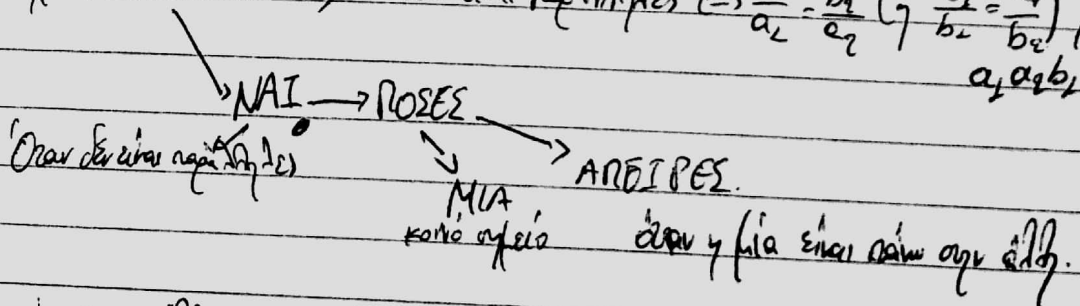 a₁ = a₂ ( ή b₁ = b₂ )
a₁ a₂ b₁
ΝΑΙ → ΠΟΣΕΣ
Όταν δεν είναι παράλληλες
ΑΠΕΙΡΕΣ.
ΜΙΑ
κοινό σημείο όταν η μία είναι πάνω στην άλλη.